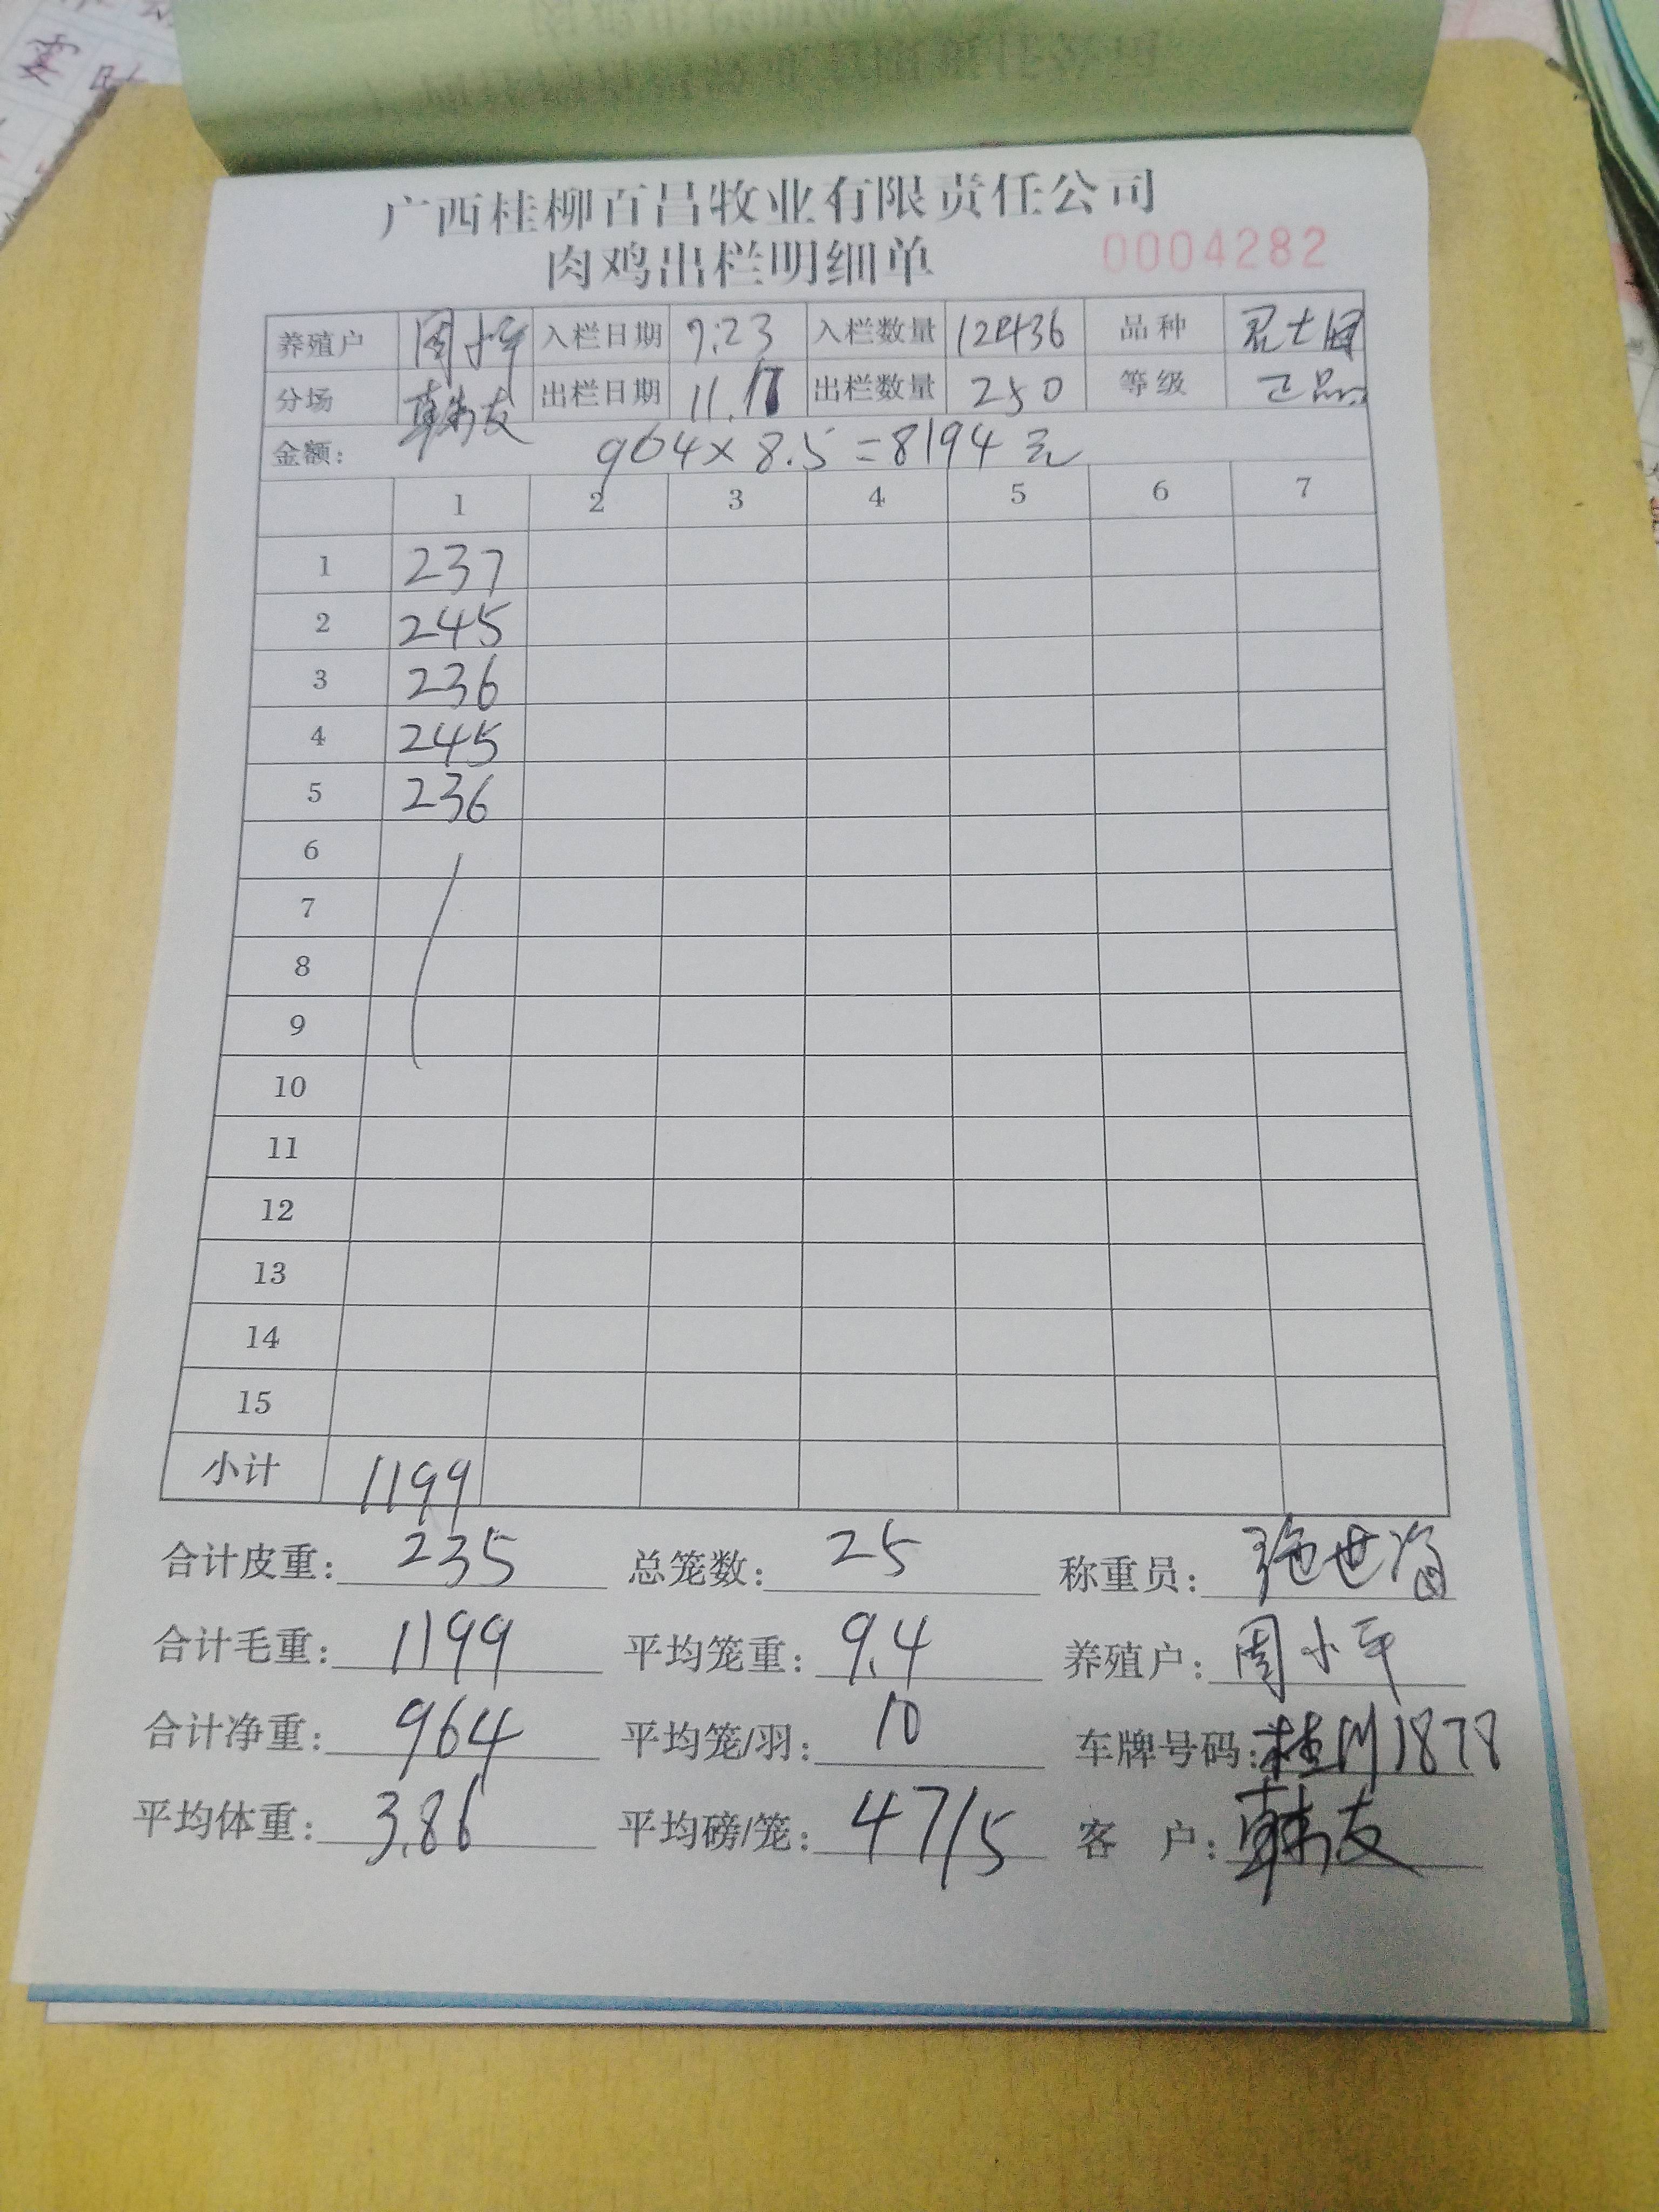 广西桂柳百昌牧业有限责任公司
肉鸡出栏明细单 0004282
养殖户 周小平 入栏日期 7.23 入栏数量 12436 品种
分场 韩友 出栏日期 11.17 出栏数量 250 等级 正品
金额: 964×8.5=8194元
1 2 3 4 5 6 7
1 237
2 245
3 236
4 245
5 236
6
7
8
9
10
11
12
13
14
15
小计 1199
合计皮重: 235 总笼数: 25 称重员:
合计毛重: 1199 平均笼重: 9.4 养殖户: 周小平
合计净重: 964 平均笼/羽: 10 车牌号码: 桂 1878
平均体重: 3.86 平均磅/笼: 47/5 客 户: 韩友